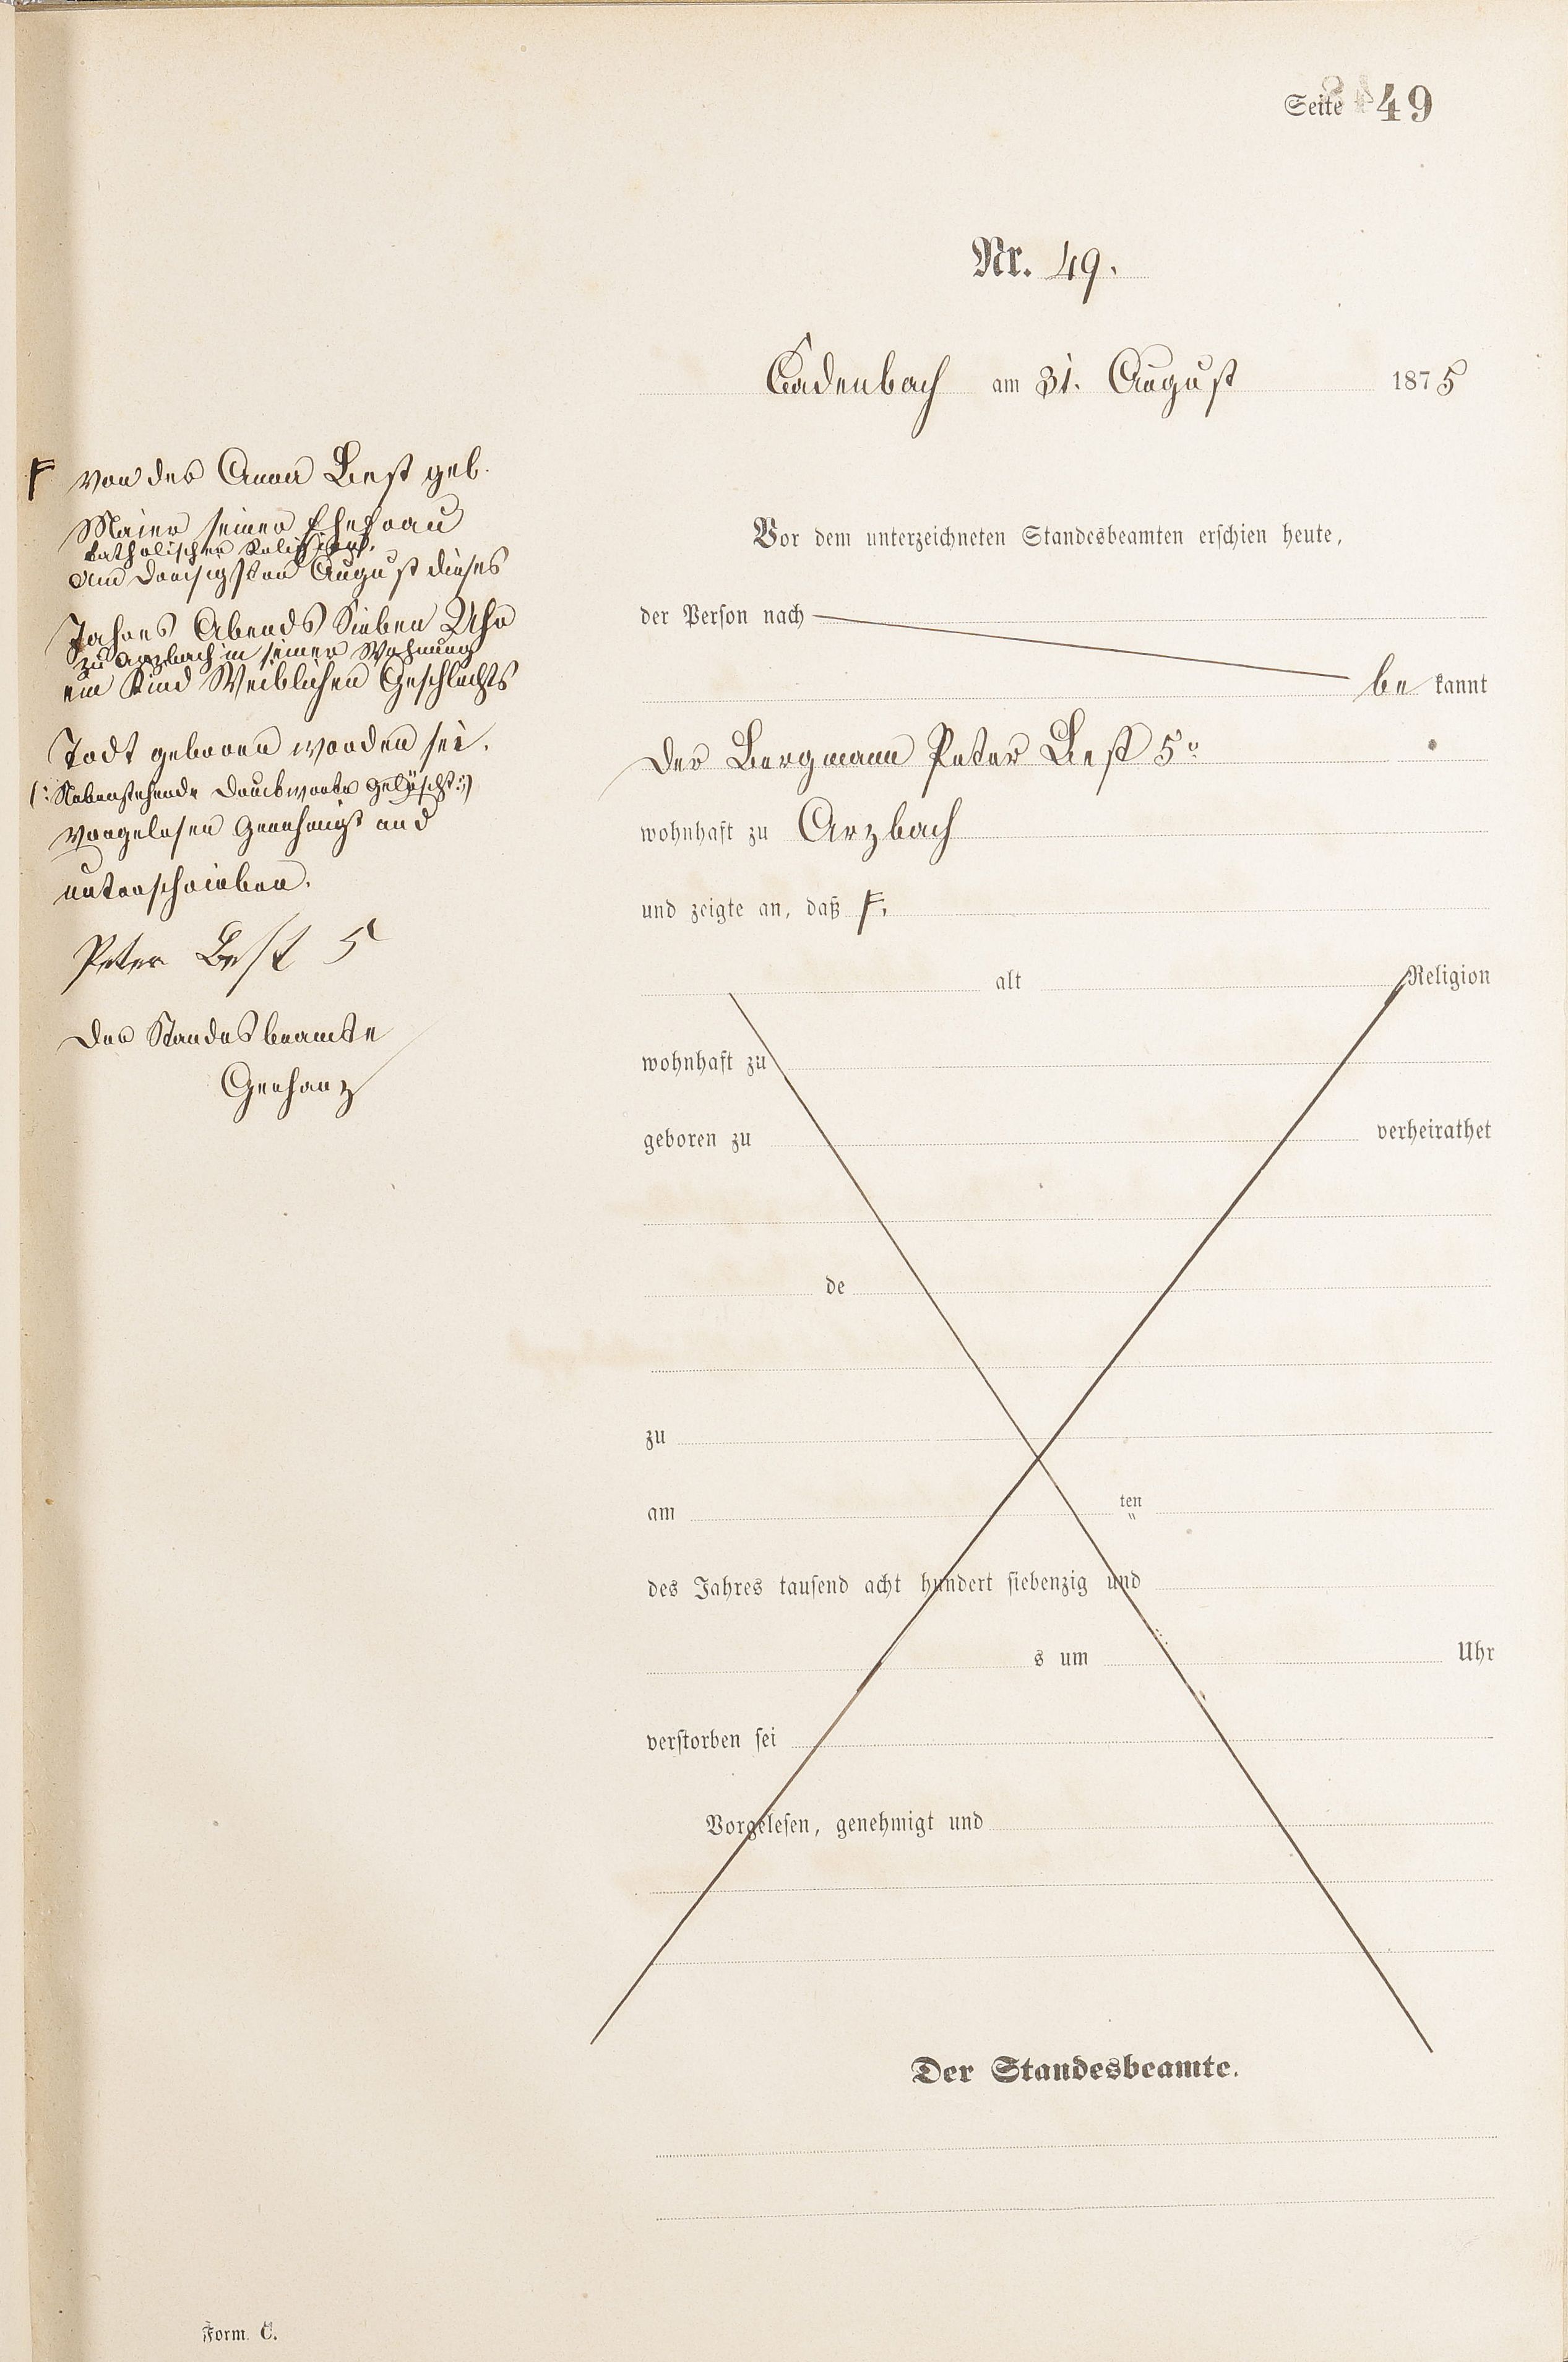 Seite 49
Nr. 49.
Cadenbach am 31. August 1875
Vor dem unterzeichneten Standesbeamten erschien heute,
der Person nach
be kannt
Der Bergmann Peter Best 5r
wohnhaft zu Arzbach
und zeigte an, daß F.
alt Religion
wohnhaft zu
geboren zu verheirathet
de
zu
am ten
des Jahres tausend acht hundert siebenzig und
s um Uhr
verstorben sei
Vorgelesen, genehmigt und
Der Standesbeamte.
F von der Anna Best geb.
Maier seiner Ehefrau
katholischer Religion,
am dreisigsten August dieses
Jahres Abends Sieben Uhr
zu Arzbach in seiner Wohnung
ein Kind Weiblichen Geschlechts
Todt geboren worden sei.
(: Nebenstehende Druckworte gelöscht :)
Vorgelesen Genehmigt und
unterschrieben.
Peter Best 5
Der Standesbeamte
Gerharz
Form. C.